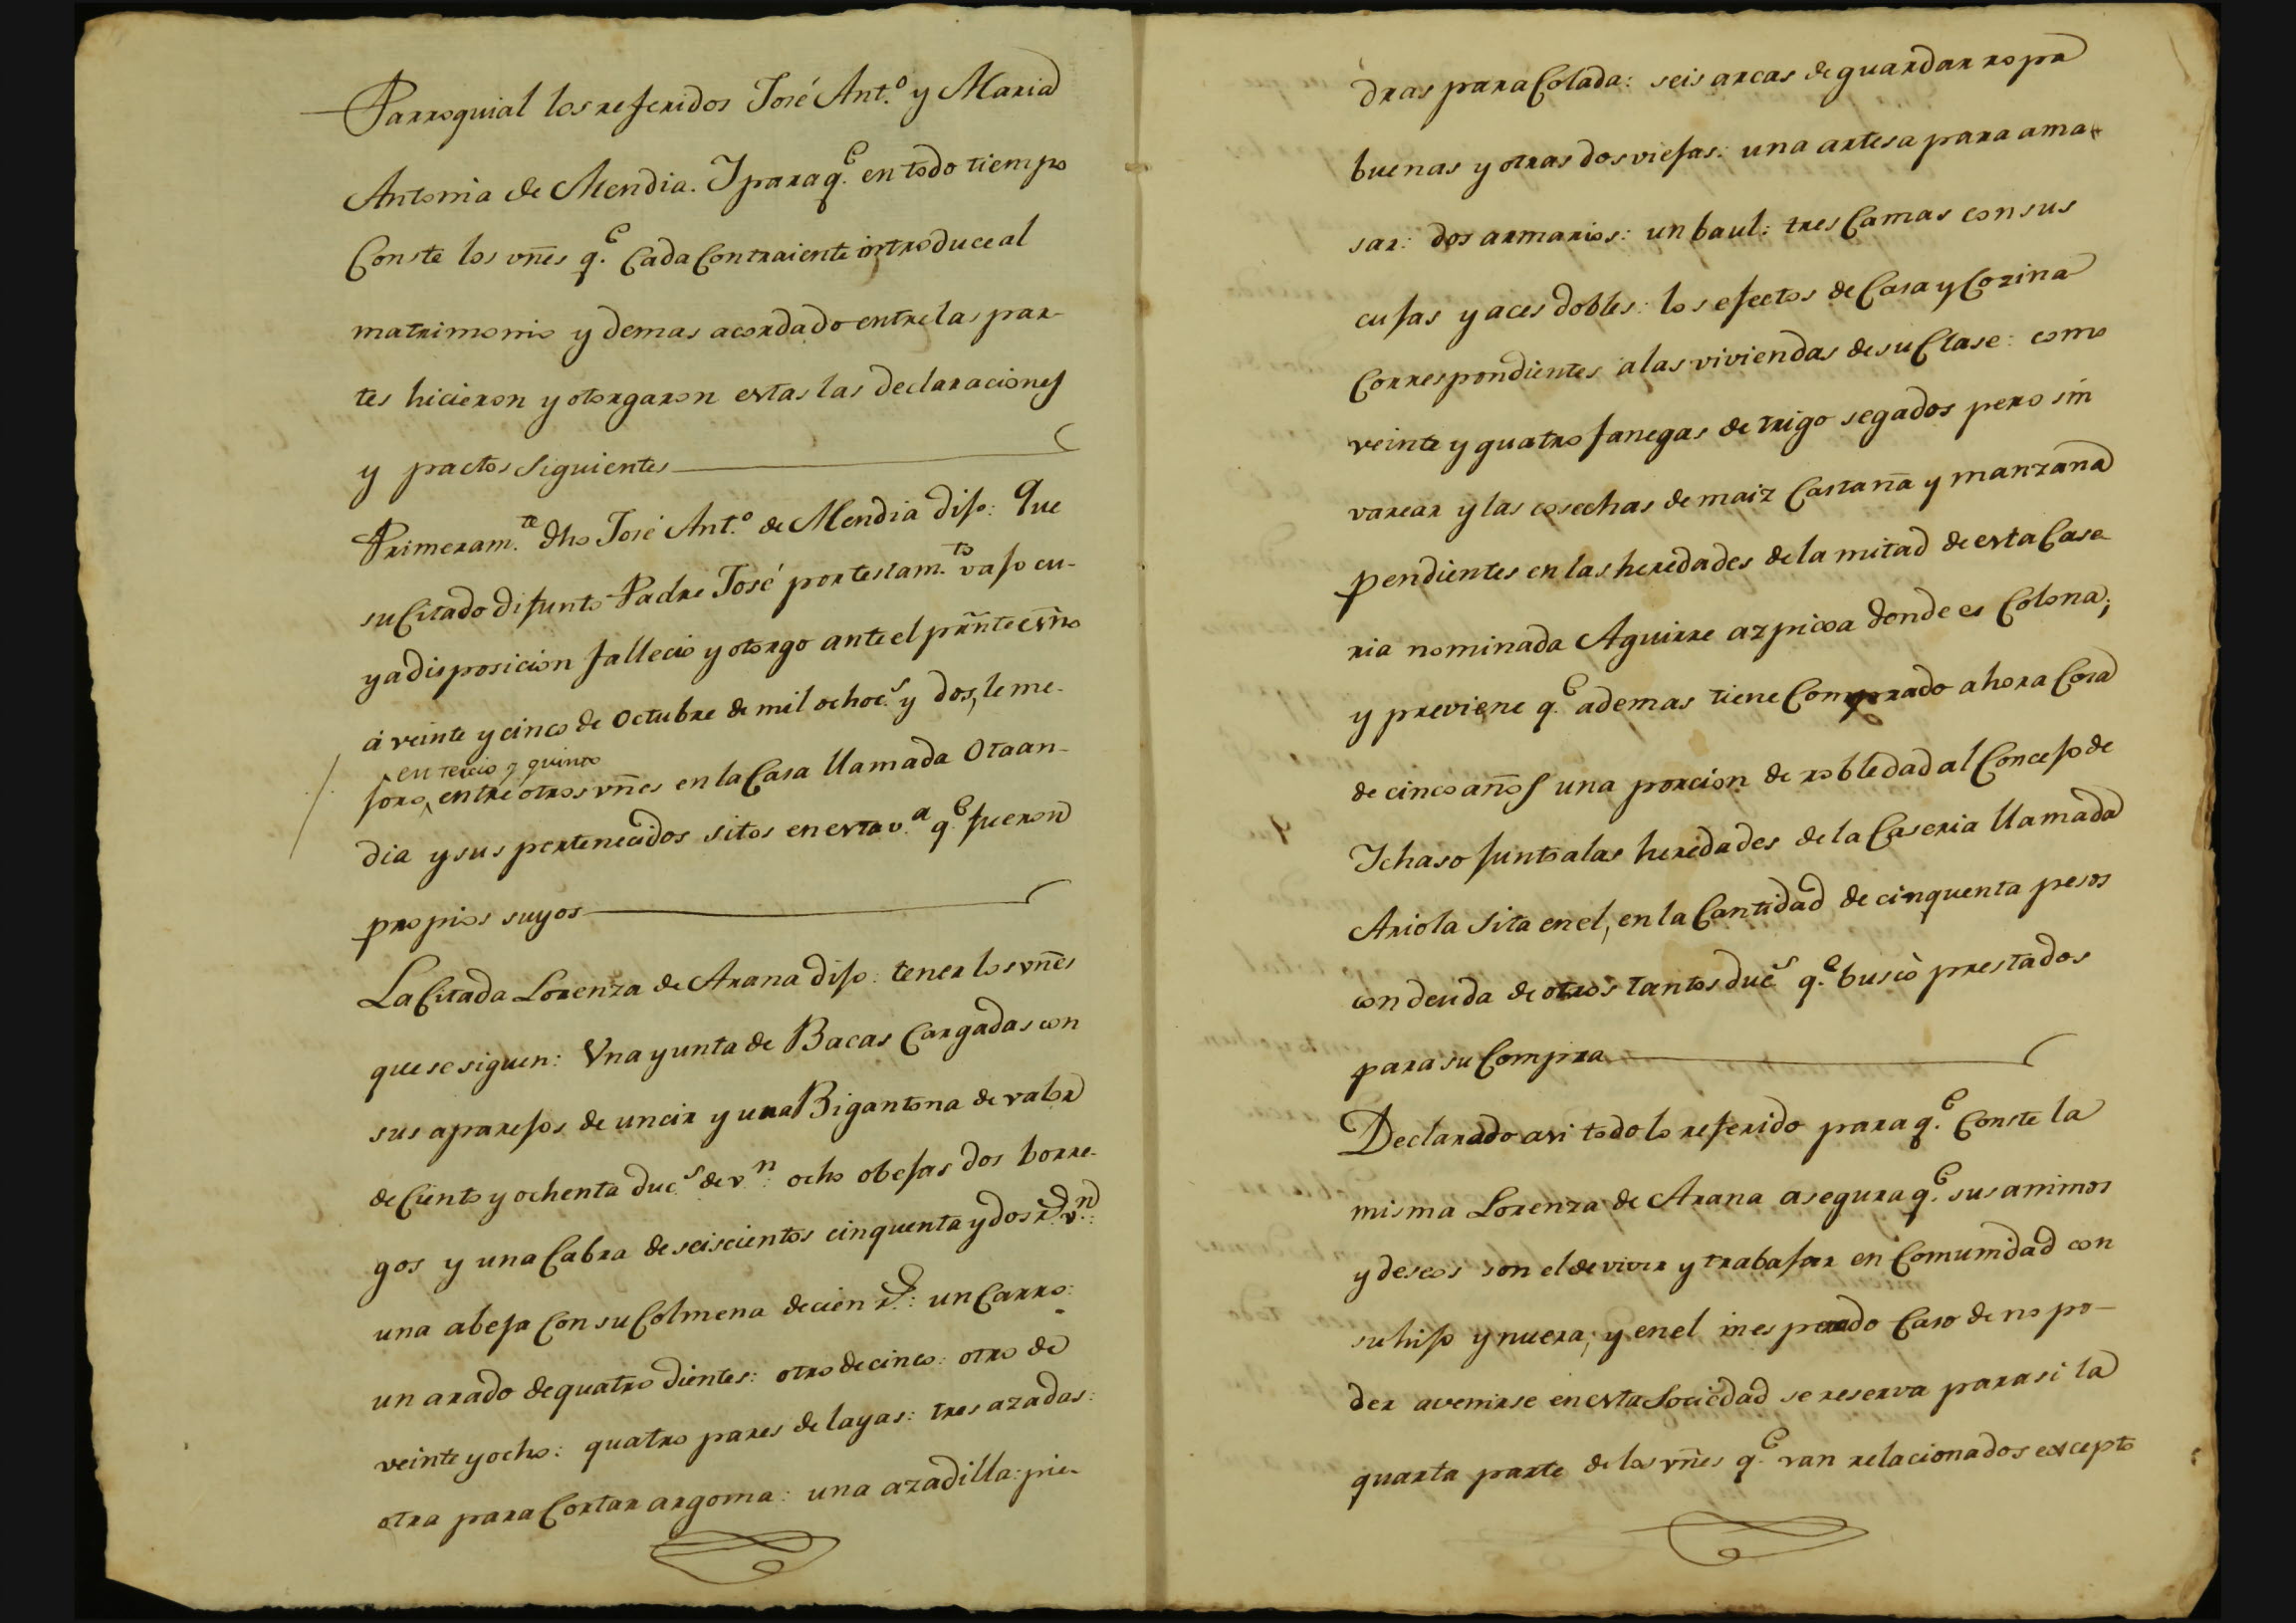 Parroquial los referidos José Ant.º y Maria
Antonia de Mendia. Y para q.e en todo tiempo
Conste los vñes q.e Cada Contraiente introduce al
matrimonio y demas acordado entre las par-
tes hicieron y otorgaron estas las declaraciones
y pactos Siguientes
Primeram.te dho José Ant.º de Mendia dijo: Que
su Citado difunto Padre José por testam.to vajo cu-
ya disposicion fallecio y otorgo ante el prñte esño
á veinte y cinco de Octubre de mil ochoc.s y dos, le me-
en tercio y quinto
joro, entre otros vñes en la Casa llamada Otaan-
dia y sus pertenecidos sitos en esta v.a q.e fueron
propios suyos
La Citada Lorenza de Arana dijo: tener los vñes
que se siguen: Una yunta de Bacas Cargadas con
sus aparejos de uncir y una Bigantona de valor
de Ciento y ochenta duc.s de v.n: ocho obejas dos borre-
gos y una Cabra de seiscientos cinquenta y dos r.s v.n:
una abeja Con su Colmena de cien r.s: un Carro:
un arado de quatro dientes: otro de cinco: otro de
veinte y ocho: quatro pares de layas: tres azadas:
otra para Cortar argoma: una azadilla: pie-
dras para Colada: seis arcas de guardar ropa
buenas y otras dos viejas: una artesa para ama-
sar: dos armarios: un baul: tres Camas con sus
cujas y aces dobles: los efectos de Casa y Cozina
Correspondientes a las viviendas de su Clase: como
veinte y quatro fanegas de trigo segados pero sin
varear y las cosechas de maiz Castaña y manzana
pendientes en las heredades de la mitad de esta Case-
ria nominada Aguirre azpicoa donde es Colona;
y previene q.e ademas tiene Comprado ahora Cosa
de cinco años una porcion de robledad al Concejo de
Ichaso junto a las heredades de la Caseria llamada
Ariola Sita en el, en la Cantidad de cinquenta pesos
con deuda de otros tantos duc.s q.e buscò prestados
para su Compra
Declarado asi todo lo referido para q.e Conste la
misma Lorenza de Arana asegura q.e sus animos
y deseos son el de vivir y trabajar en Comunidad con
su hijo y nuera; y en el inesperado Caso de no po-
der avenirse en esta Sociedad se reserva para si la
quarta parte de los vñes q.e van relacionados excepto